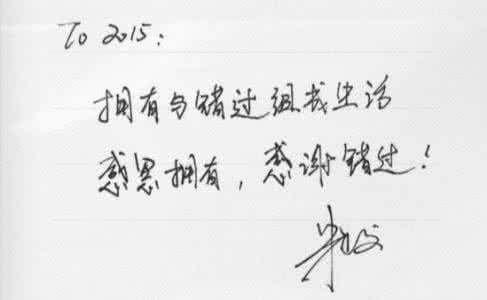 To 2015:
拥有与错过组成生活
感恩拥有，感谢错过！